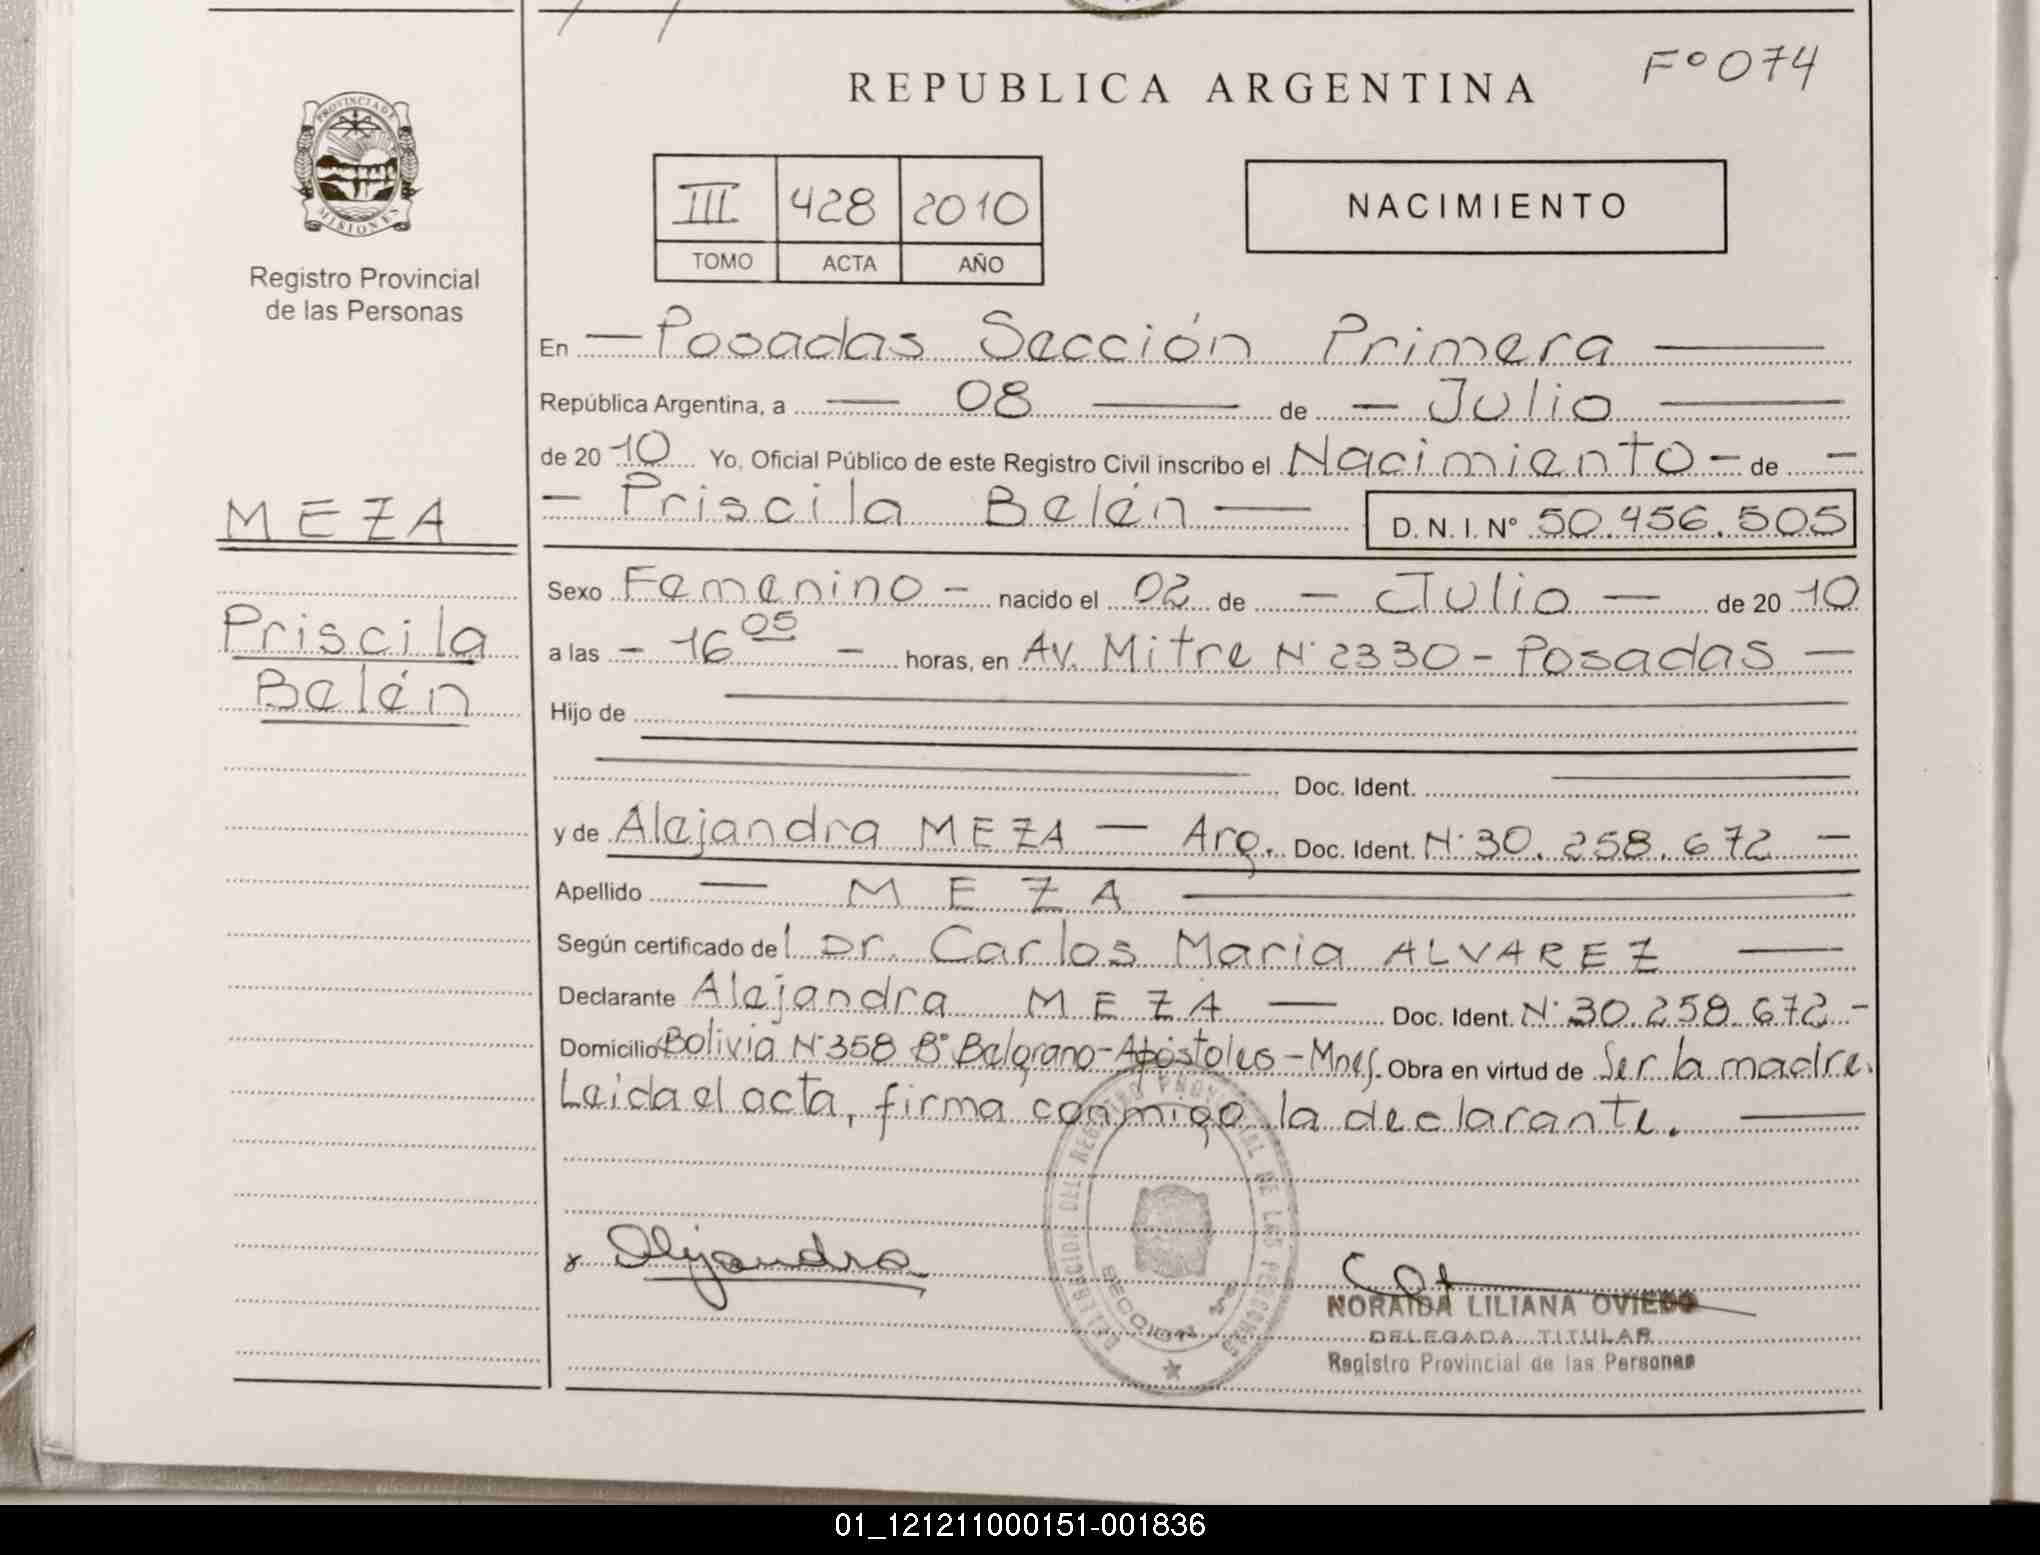 REPUBLICA ARGENTINA
Fº 074
PROVINCIA DE MISIONES
Registro Provincial
de las Personas
III 428 2010
TOMO ACTA AÑO
NACIMIENTO
En — Posadas Sección Primera —
República Argentina, a — 08 — de — Julio —
de 2010 Yo, Oficial Público de este Registro Civil inscribo el Nacimiento - de -
- Priscila Belén — D. N. I. Nº 50.456.505
MEZA
Priscila
Belén
Sexo Femenino - nacido el 02 de - Julio - de 2010
a las - 16 05 - horas, en Av. Mitre Nº 2330 - Posadas -
Hijo de
Doc. Ident.
y de Alejandra MEZA — Arg. Doc. Ident. Nº 30.258.672 -
Apellido — MEZA —
Según certificado del Dr. Carlos Maria ALVAREZ —
Declarante Alejandra MEZA — Doc. Ident. Nº 30.258.672 -
Domicilio Bolivia Nº 358 Bº Belgrano - Apóstoles - Mnes. Obra en virtud de Ser la madre.
Leida el acta, firma conmigo la declarante. —
REGISTRO PROVINCIAL DE LAS PERSONAS
SECCION 1ra
x Alejandra
NORAIDA LILIANA OVIEDO
DELEGADA TITULAR
Registro Provincial de las Personas
01_121211000151-001836